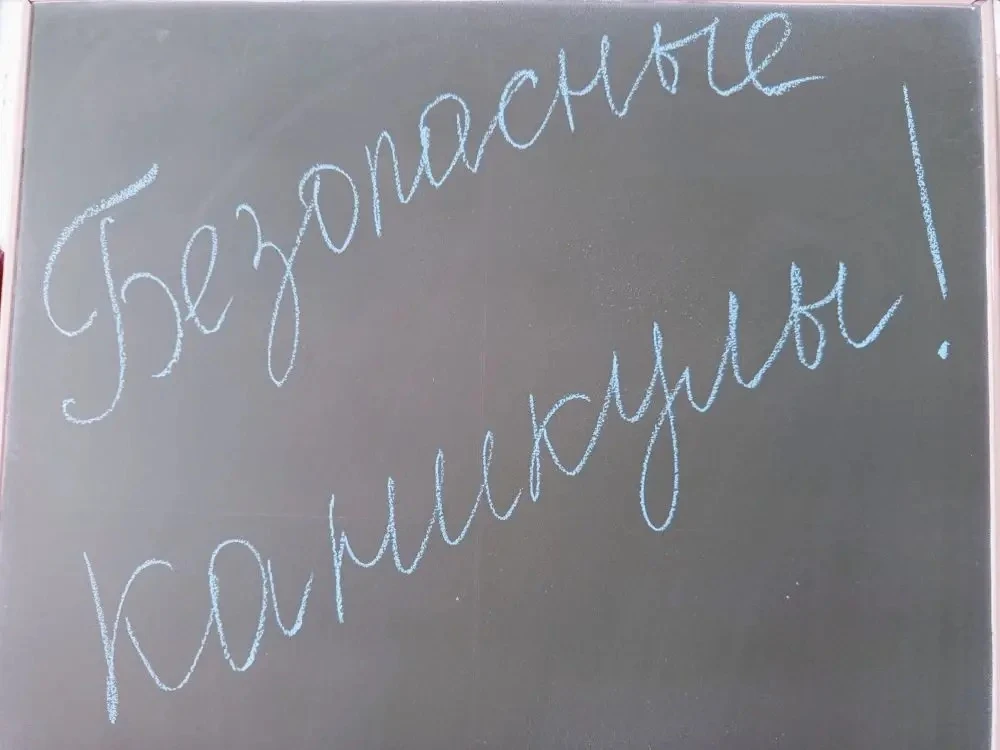 Безопасные
каникулы!